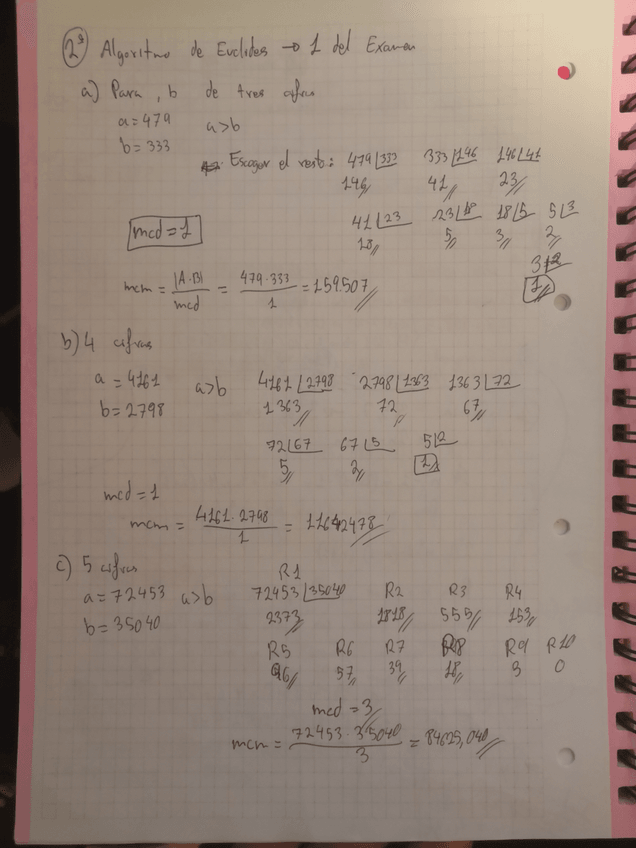 2º Algoritmo de Euclides → 1 del Examen
a) Para , b de tres cifras
a=479 a>b
b=333
Escoger el resto: 479|333 333|146 146|41
146 41 23
41|23 23|18 18|5 5|3
18 5 3 2
mcd=1
3|2
1
mcm = |A·B|/mcd = 479·333/1 = 159.507
b) 4 cifras
a = 4161 a>b 4161|2798 2798|1363 1363|72
b=2798 1363 72 67
72|67 67|5 5|2
5 2 1
mcd=1
mcm = 4161·2798/1 = 11642478
c) 5 cifras R1
a=72453 a>b 72453|35040 R2 R3 R4
b=35040 2373 1818 555 153
R5 R6 R7 R8 R9 R10
96 57 39 18 3 0
mcd=3
mcm = 72453·35040/3 = 84625,040